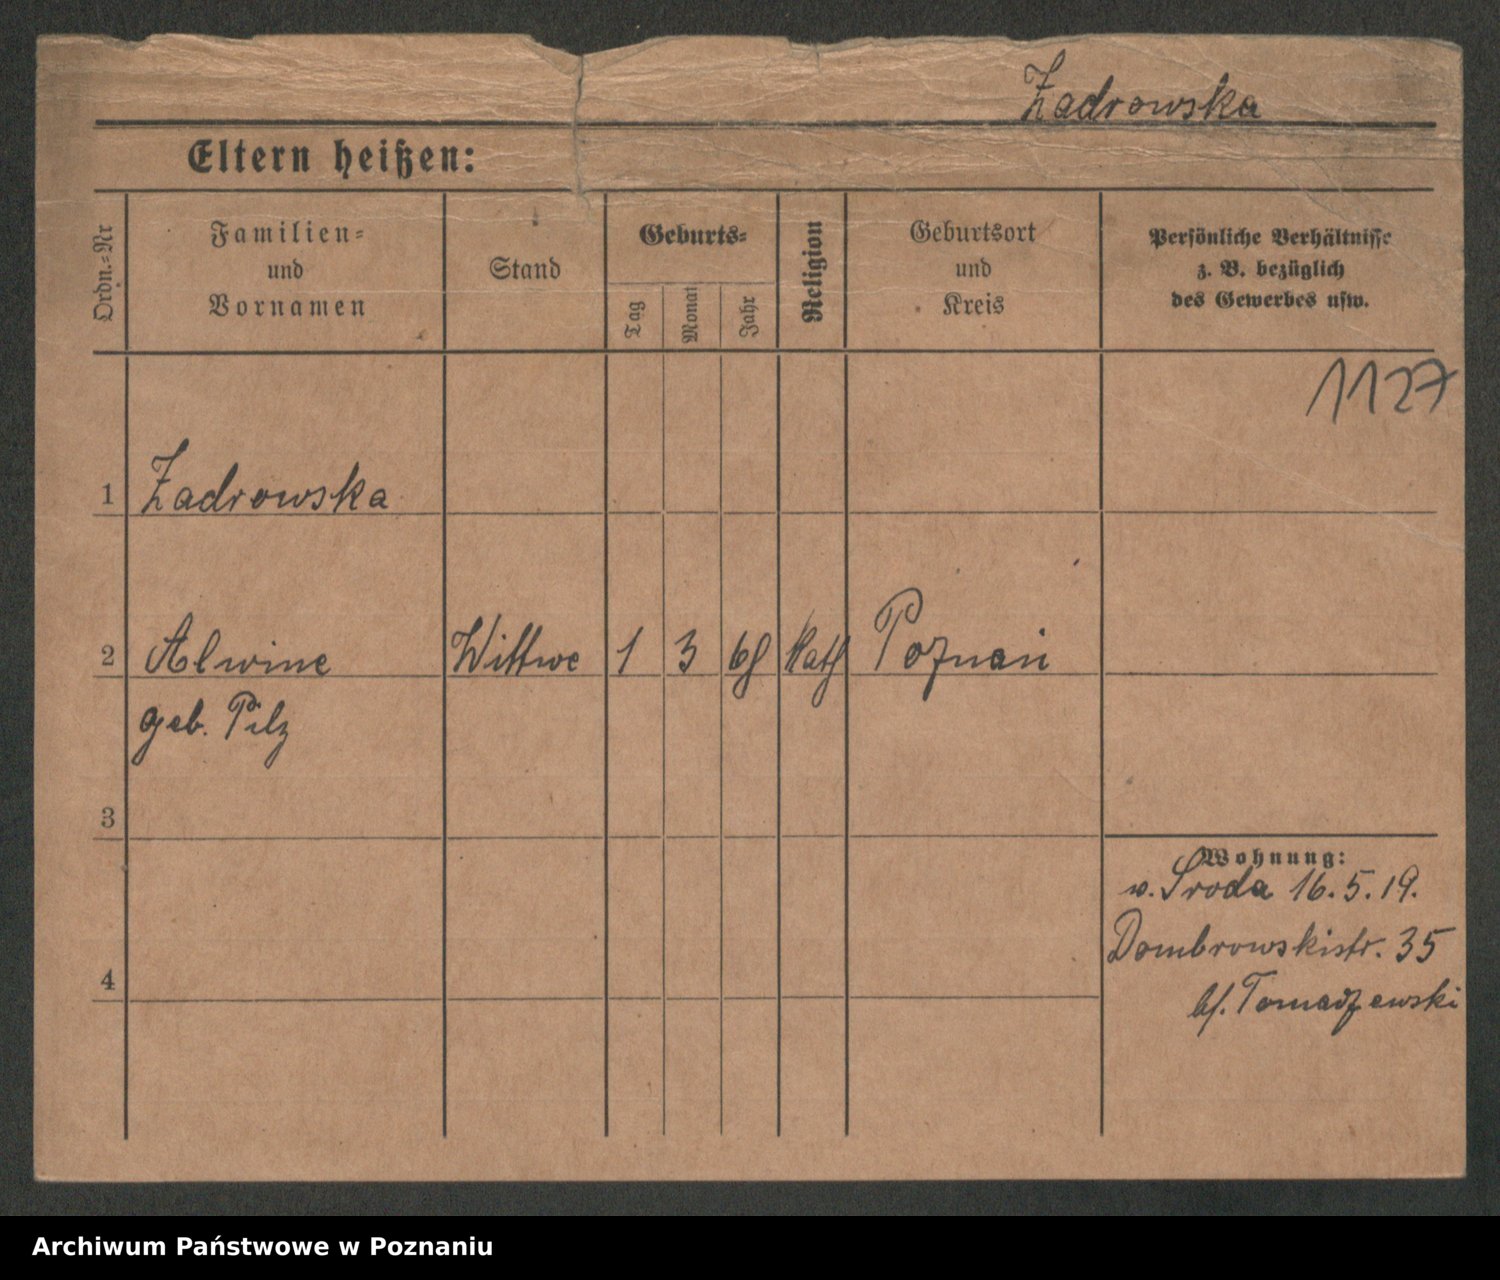 Zadrowska
Eltern heißen:
Ordn.=Nr
Familien=
und
Vornamen
Stand
Geburts=
Tag
Monat
Jahr
Religion
Geburtsort
und
Kreis
Persönliche Verhältnisse
z. B. bezüglich
des Gewerbes usw.
1127
1 Zadrowska
2 Alwine Wittwe 1 3 68 Kath Poznań
geb. Pilz
3
Wohnung:
v. Sroda 16.5.19.
Dombrowskistr. 35
4
bf. Tomaszewski
Archiwum Państwowe w Poznaniu